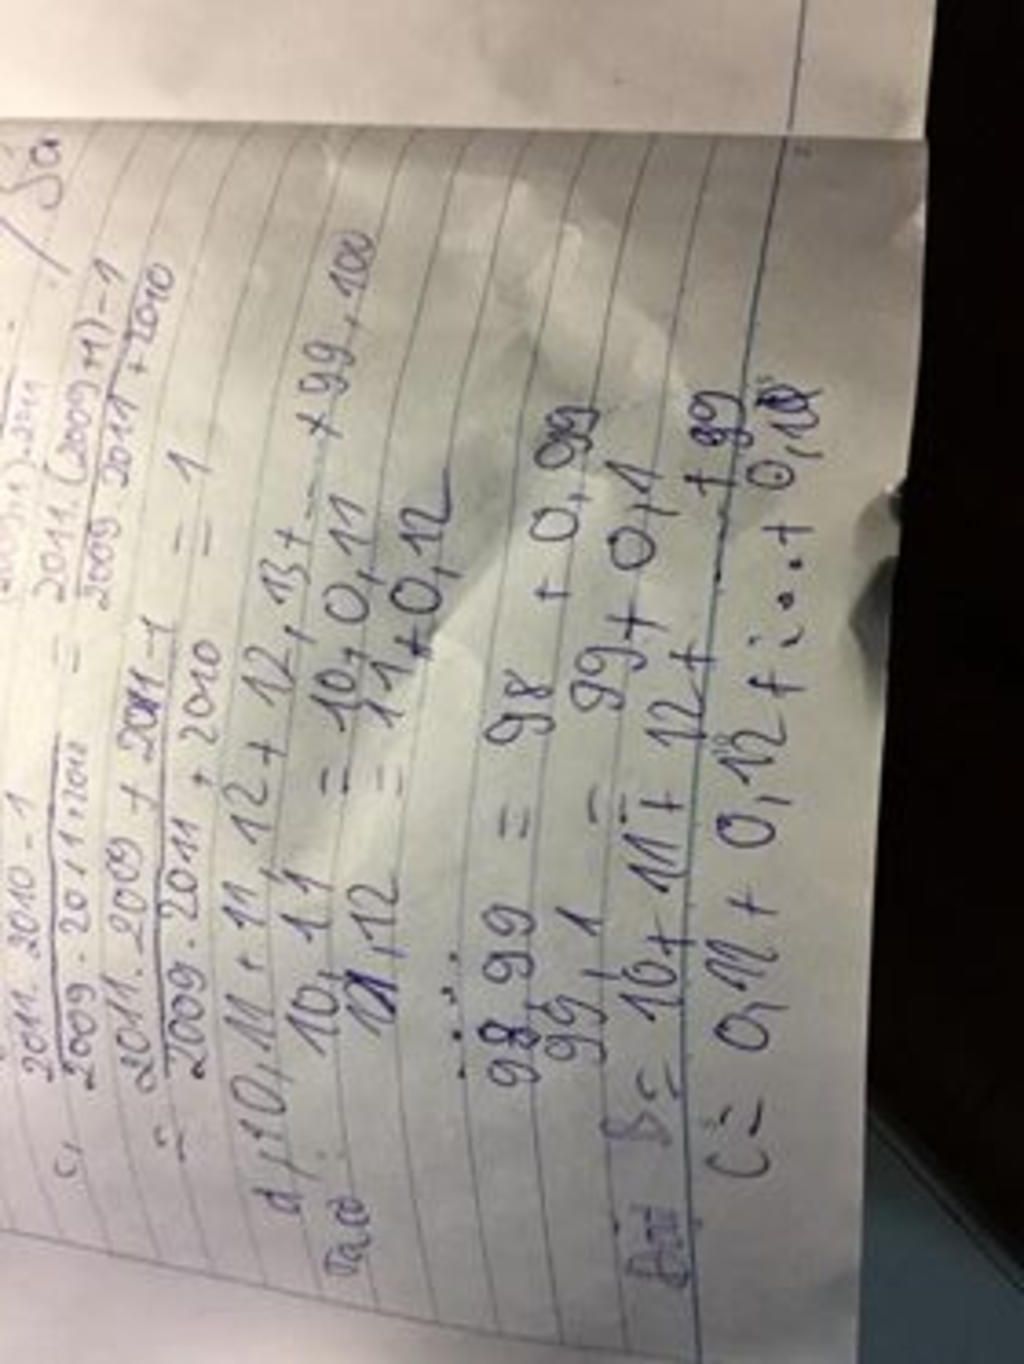 c, 2011.2010-1
2009.2011+2012 = 2011.(2009+1)-1
2009.2011+2010
= 2011.2009+2011-1
2009.2011+2010 = 1
d, 10,11+11,12+12,13+...+99,100
Ta có 10,11 = 10+0,11
11,12 = 11+0,12
98,99 = 98+0,99
99,1 = 99+0,1
B = 10+11+12+...+99
C = 0,11+0,12+...+0,10